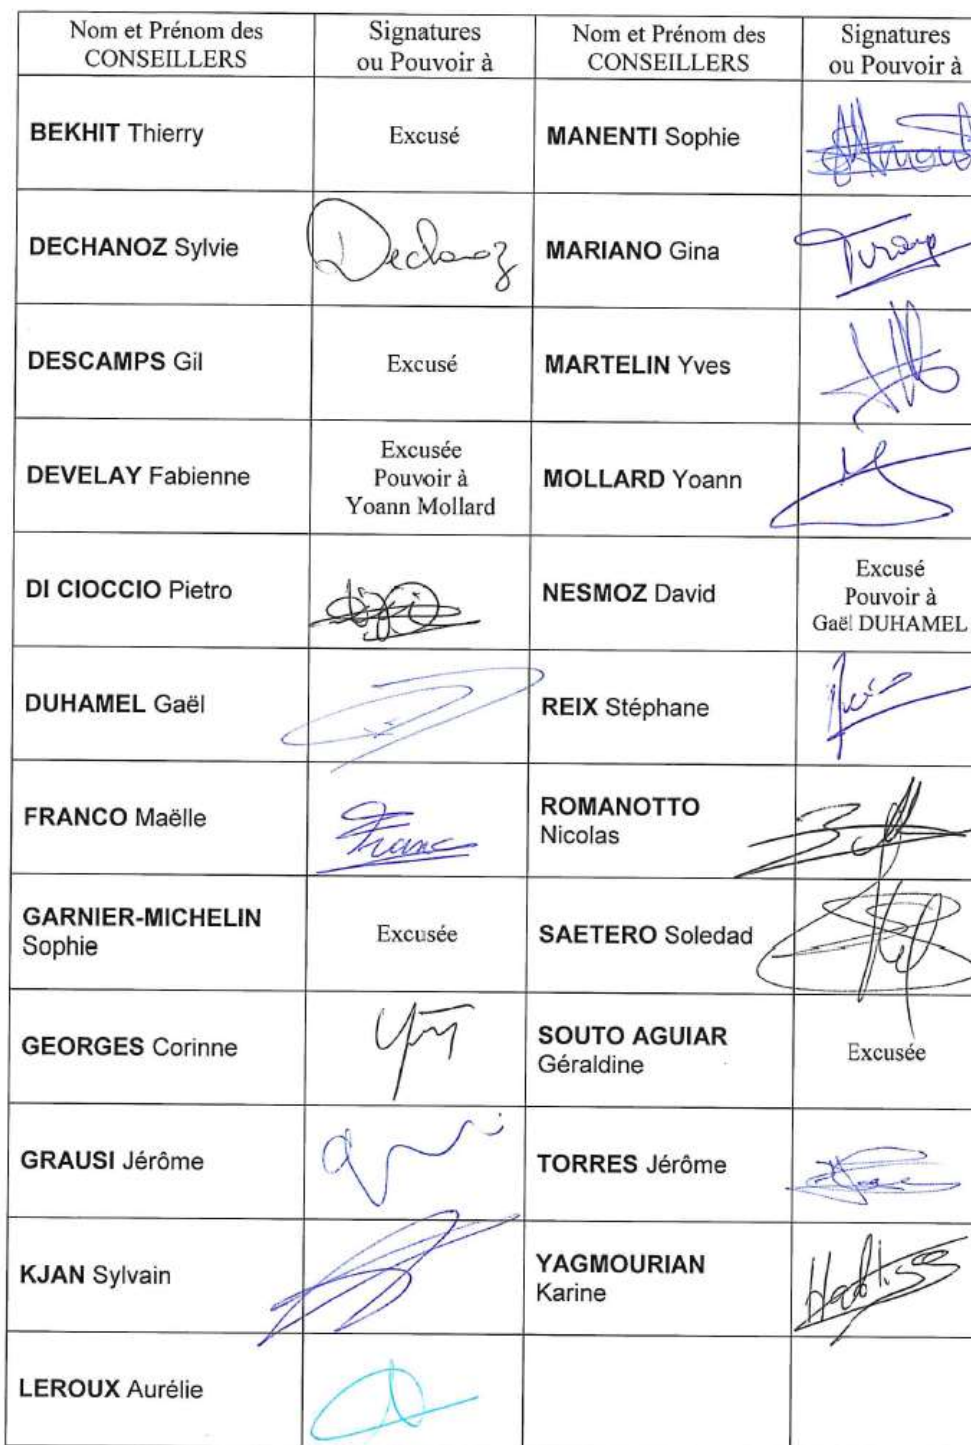 Nom et Prénom des
CONSEILLERS
Signatures
ou Pouvoir à
Nom et Prénom des
CONSEILLERS
Signatures
ou Pouvoir à
BEKHIT Thierry
Excusé
MANENTI Sophie
DECHANOZ Sylvie
Dechanoz
MARIANO Gina
DESCAMPS Gil
Excusé
MARTELIN Yves
DEVELAY Fabienne
Excusée
Pouvoir à
Yoann Mollard
MOLLARD Yoann
DI CIOCCIO Pietro
NESMOZ David
Excusé
Pouvoir à
Gaël DUHAMEL
DUHAMEL Gaël
REIX Stéphane
FRANCO Maëlle
ROMANOTTO
Nicolas
GARNIER-MICHELIN
Sophie
Excusée
SAETERO Soledad
GEORGES Corinne
SOUTO AGUIAR
Géraldine
Excusée
GRAUSI Jérôme
TORRES Jérôme
KJAN Sylvain
YAGMOURIAN
Karine
LEROUX Aurélie